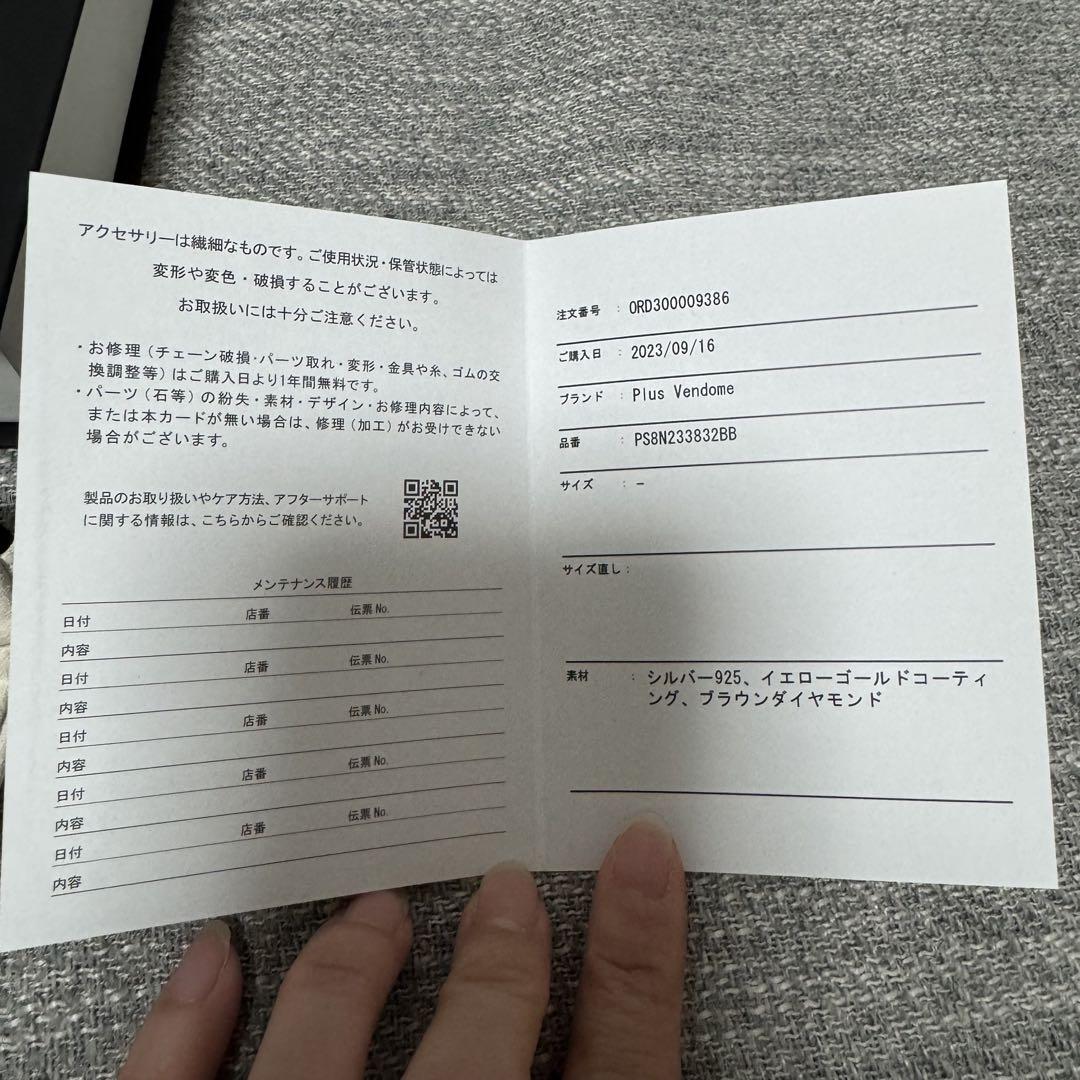 アクセサリーは繊細なものです。ご使用状況・保管状態によっては
変形や変色・破損することがございます。
お取扱いには十分ご注意ください。
・お修理(チェーン破損・パーツ取れ・変形・金具や糸、ゴムの交
換調整等)はご購入日より1年間無料です。
・パーツ(石等)の紛失・素材・デザイン・お修理内容によって、
または本カードが無い場合は、修理(加工)がお受けできない
場合がございます。
製品のお取り扱いやケア方法、アフターサポート
に関する情報は、こちらからご確認ください。
メンテナンス履歴
日付 店番 伝票No.
内容
日付 店番 伝票No.
内容
日付 店番 伝票No.
内容
日付 店番 伝票No.
内容
日付 店番 伝票No.
内容
注文番号 : ORD300009386
ご購入日 : 2023/09/16
ブランド : Plus Vendome
品番 : PS8N233832BB
サイズ : −
サイズ直し :
素材 : シルバー925、イエローゴールドコーティ
ング、ブラウンダイヤモンド